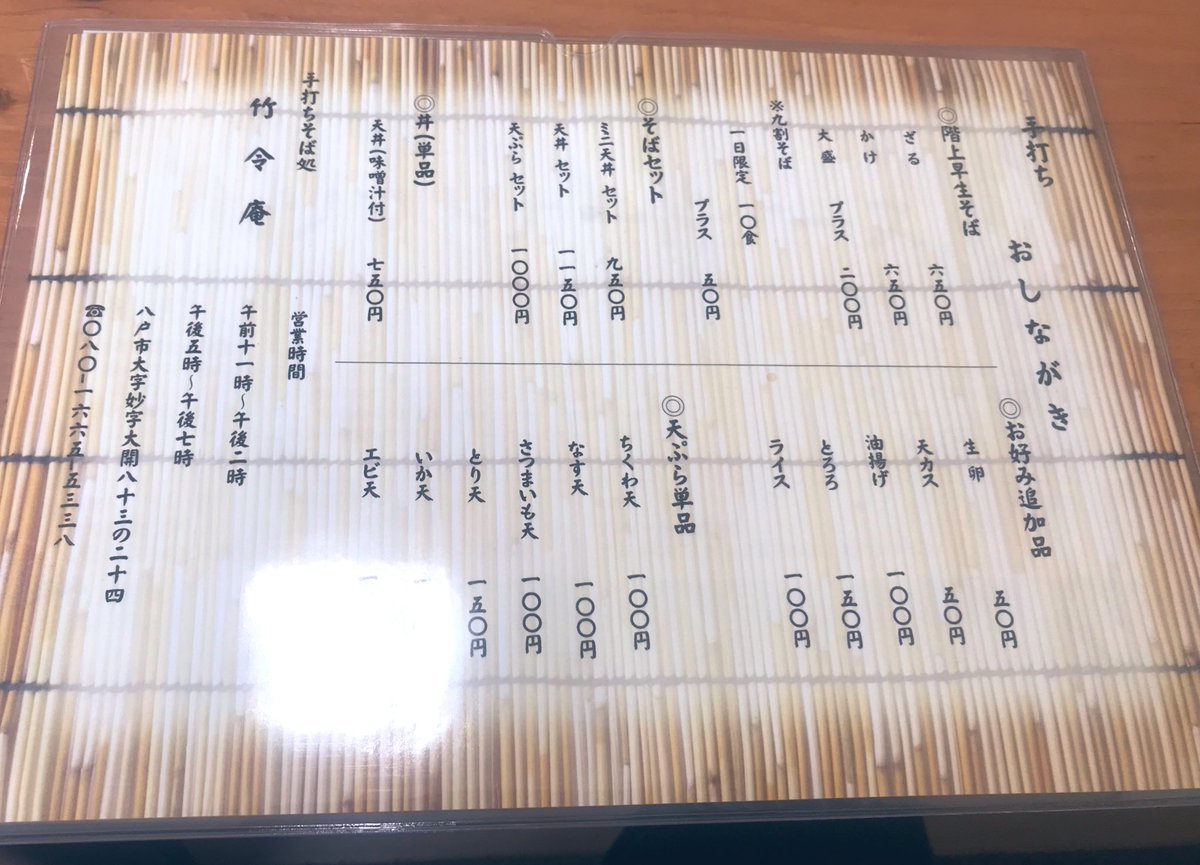 手打ち おしながき
◎階上早生そば
ざる 六五〇円
かけ 六五〇円
大盛 プラス 二〇〇円
※九割そば
一日限定 一〇食
プラス 五〇円
◎そばセット
ミニ天丼 セット 九五〇円
天丼 セット 一一五〇円
天ぷら セット 一〇〇〇円
◎丼(単品)
天丼(味噌汁付) 七五〇円
◎お好み追加品
生卵 五〇円
天カス 五〇円
油揚げ 一〇〇円
とろろ 一五〇円
ライス 一〇〇円
◎天ぷら単品
ちくわ天 一〇〇円
なす天 一〇〇円
さつまいも天 一〇〇円
とり天 一五〇円
いか天
エビ天
手打ちそば処
竹令庵
営業時間
午前十一時～午後二時
午後五時～午後七時
八戸市大字妙字大開八十三の二十四
☎〇八〇-一六六五-五三三八